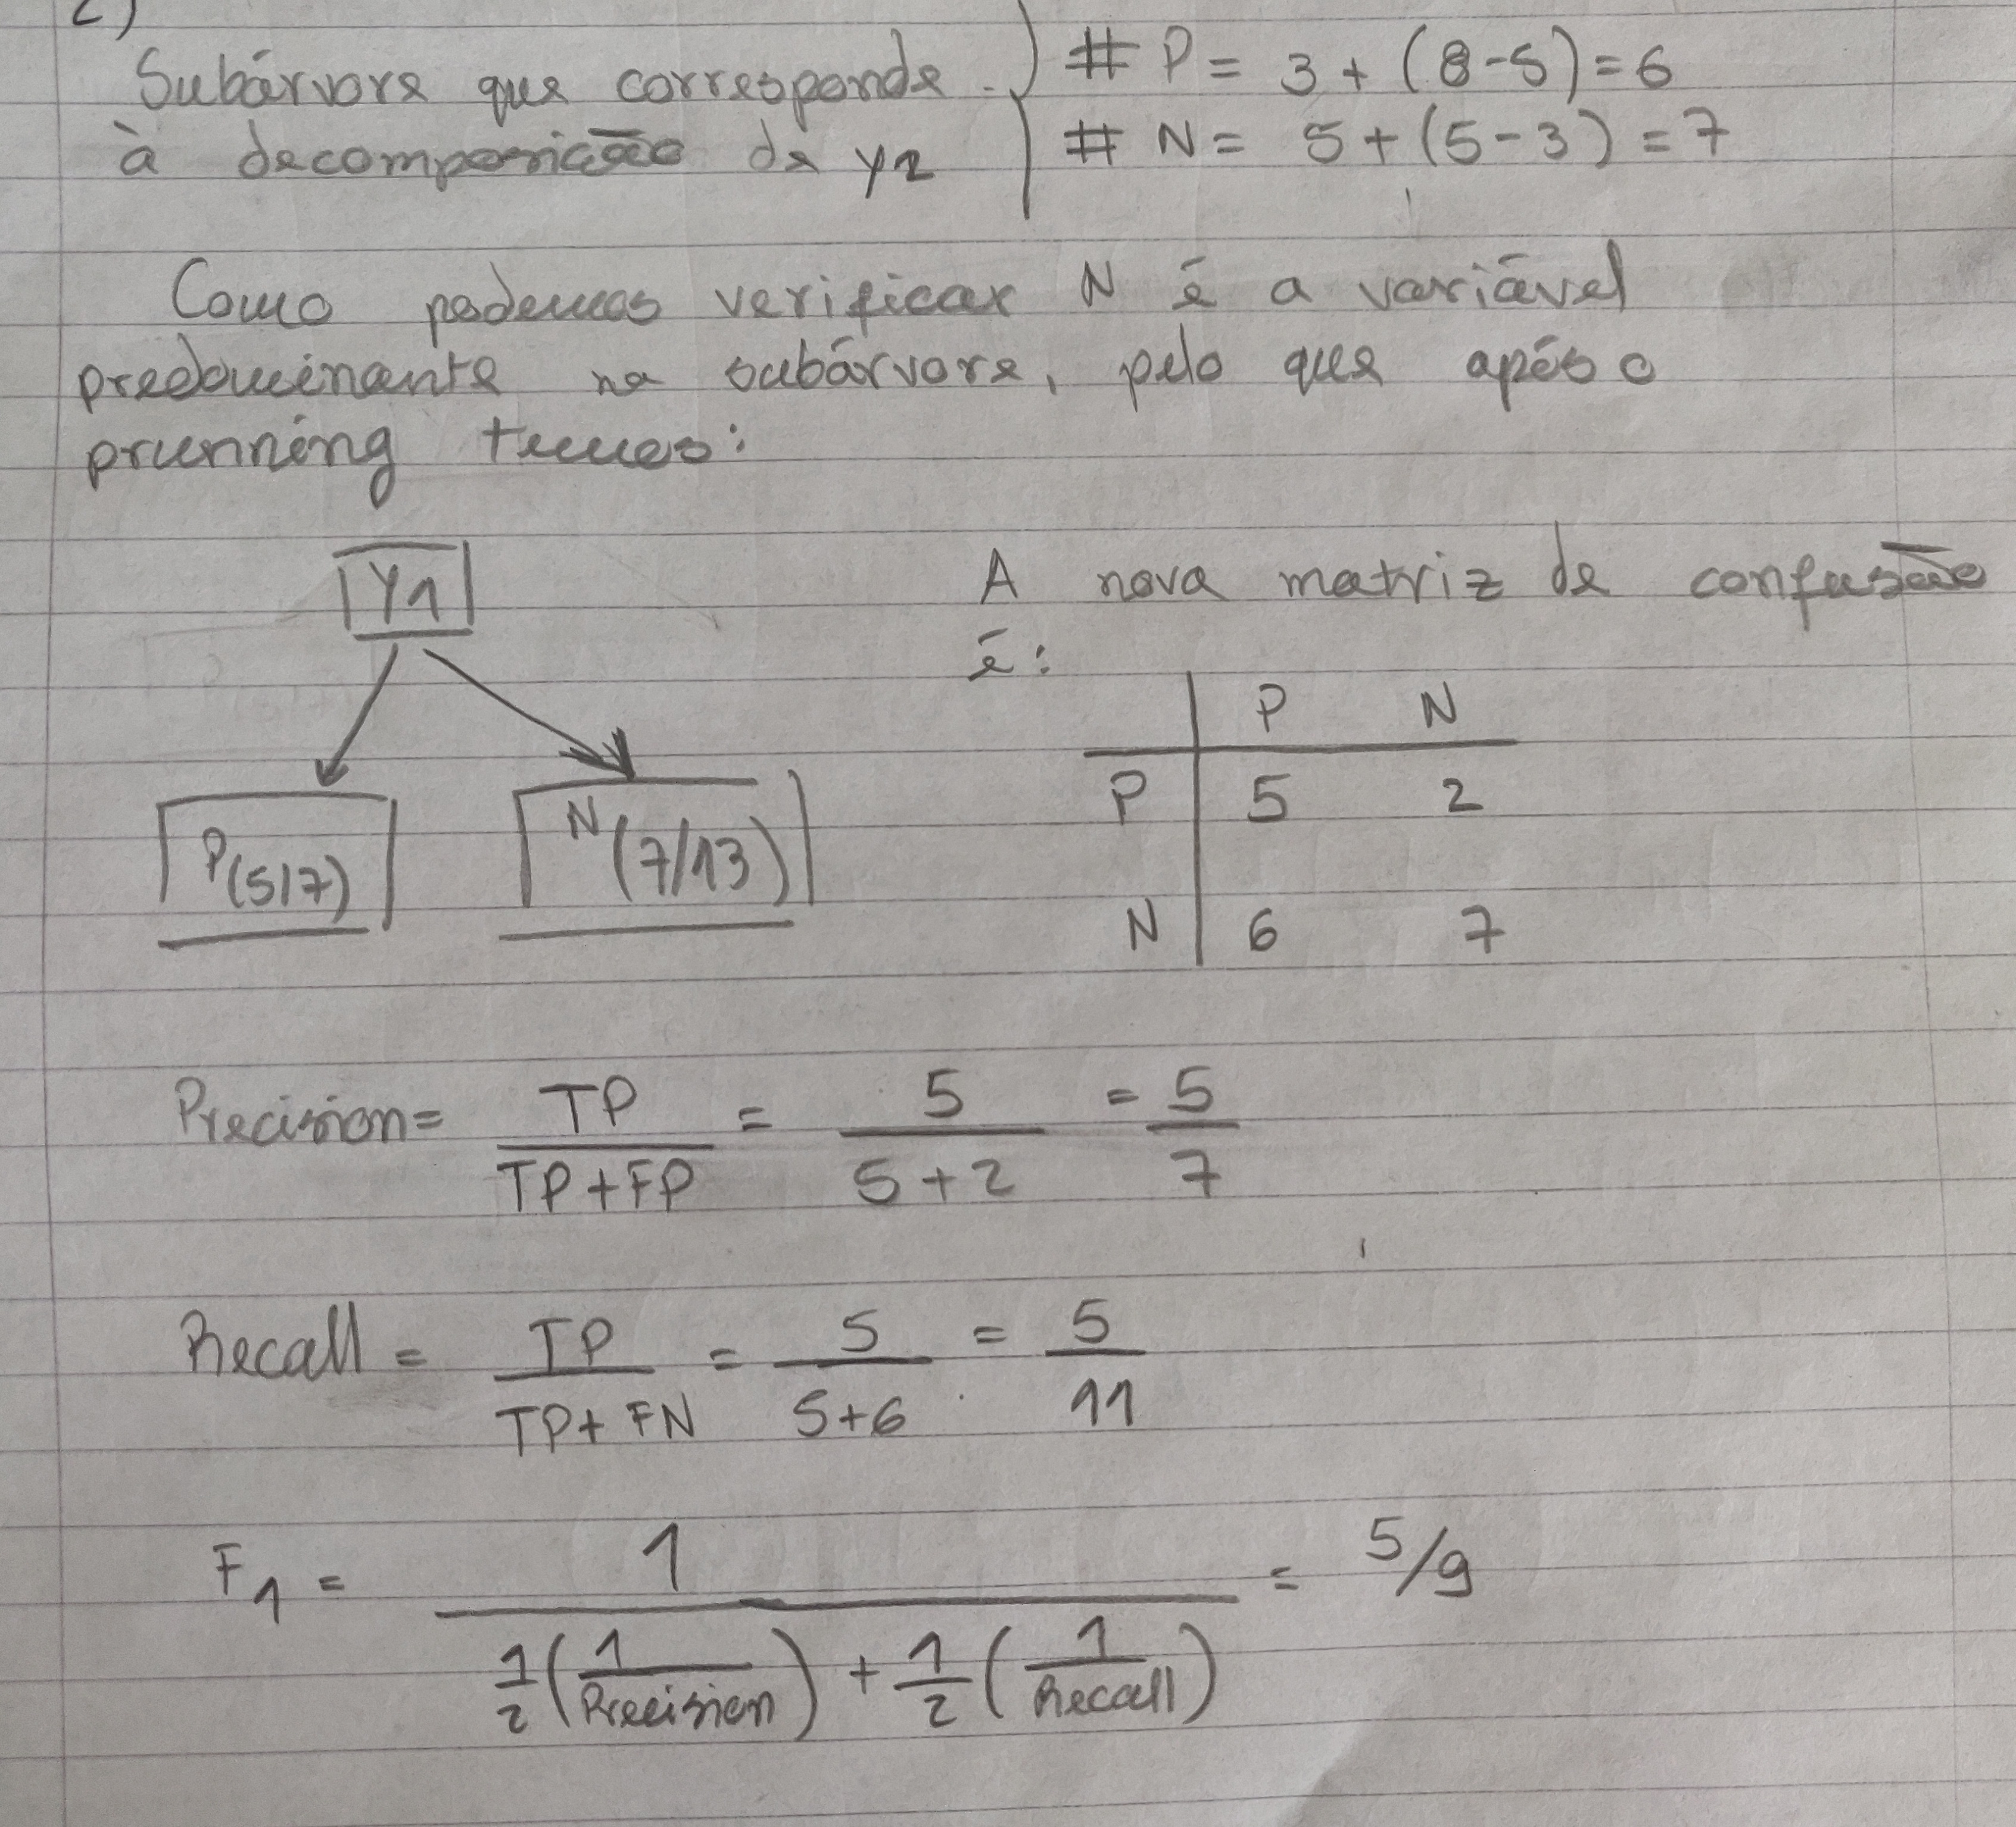 2)
Subárvore que corresponde } # P = 3 + (8-5) = 6
à decomposição de y2 } # N = 5 + (5-3) = 7
Como podemos verificar N é a variável
predominante na subárvore, pelo que após o
prunning temos:
Y1
P (5/7)
N (7/13)
A nova matriz de confusão
é:
P N
P 5 2
N 6 7
Precision = TP/(TP+FP) = 5/(5+2) = 5/7
Recall = TP/(TP+FN) = 5/(5+6) = 5/11
F1 = 1/(1/2(1/Precision) + 1/2(1/Recall)) = 5/9